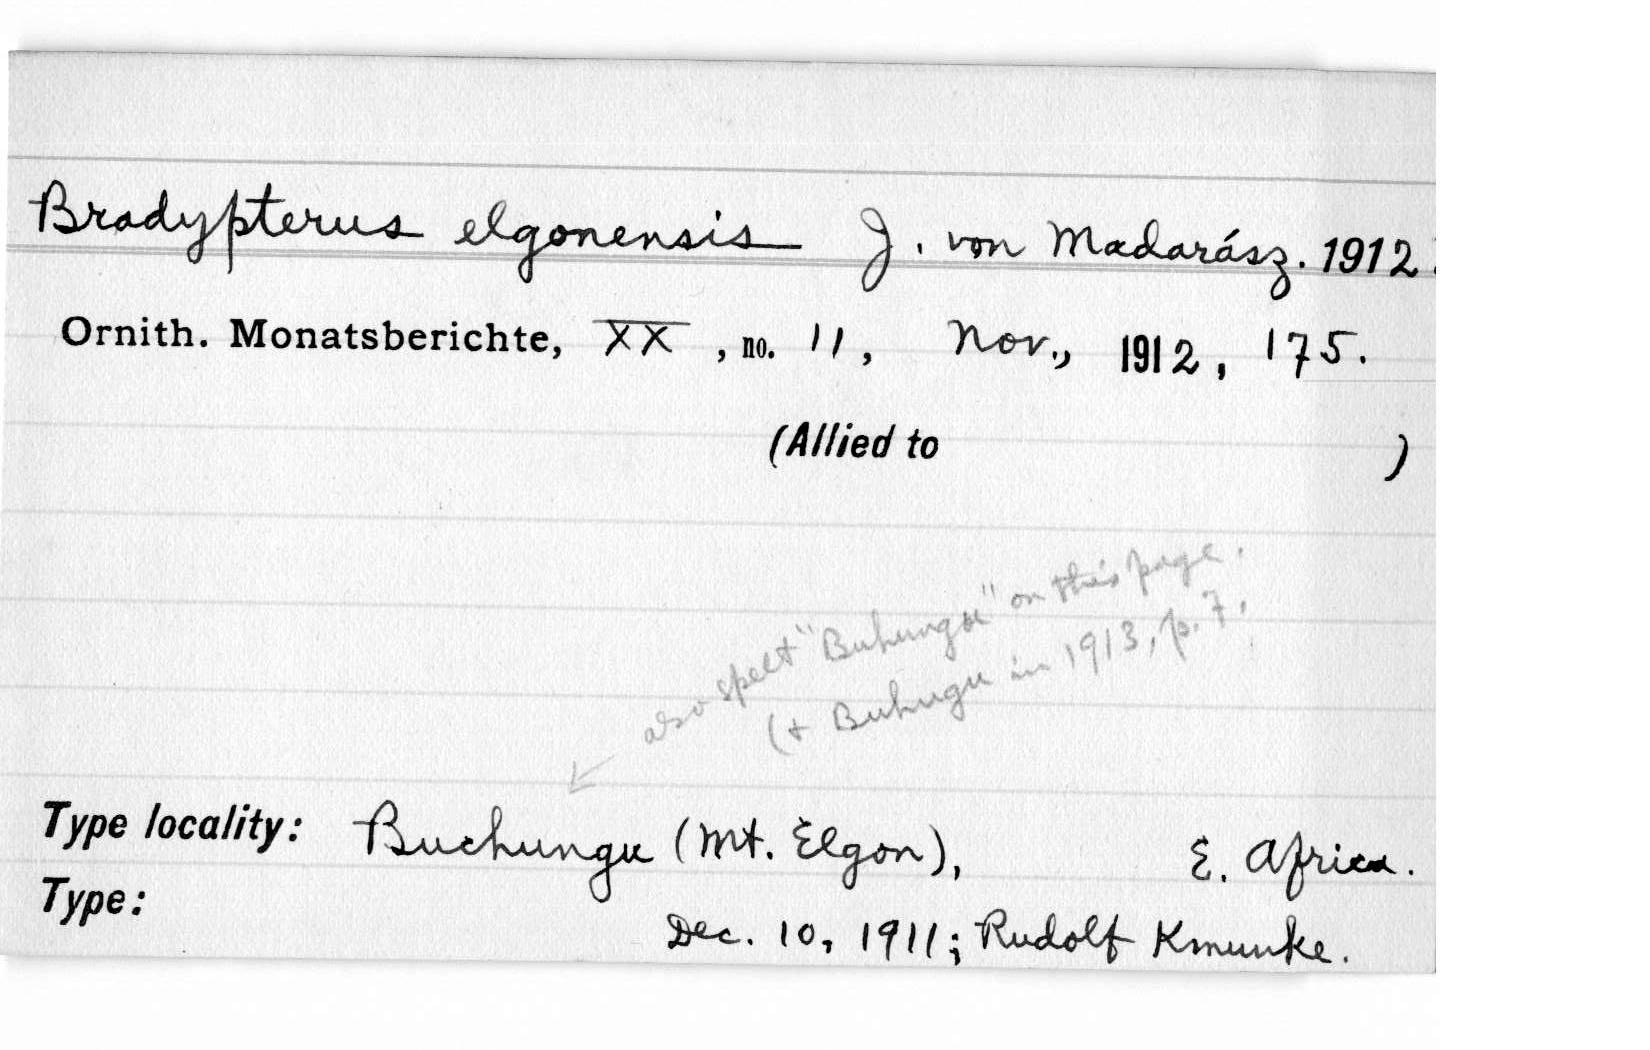 Bradypterus elgonensis J. von Madarász. 1912.
Ornith. Monatsberichte, XX, no. 11, Nov., 1912, 175.
(Allied to )
also spelt "Buhungu" on this page.
(+ Buhugu in 1913, p. 7.
Type locality: Buchungu (Mt. Elgon), E. Africa.
Type:
Dec. 10, 1911; Rudolf Kmunke.